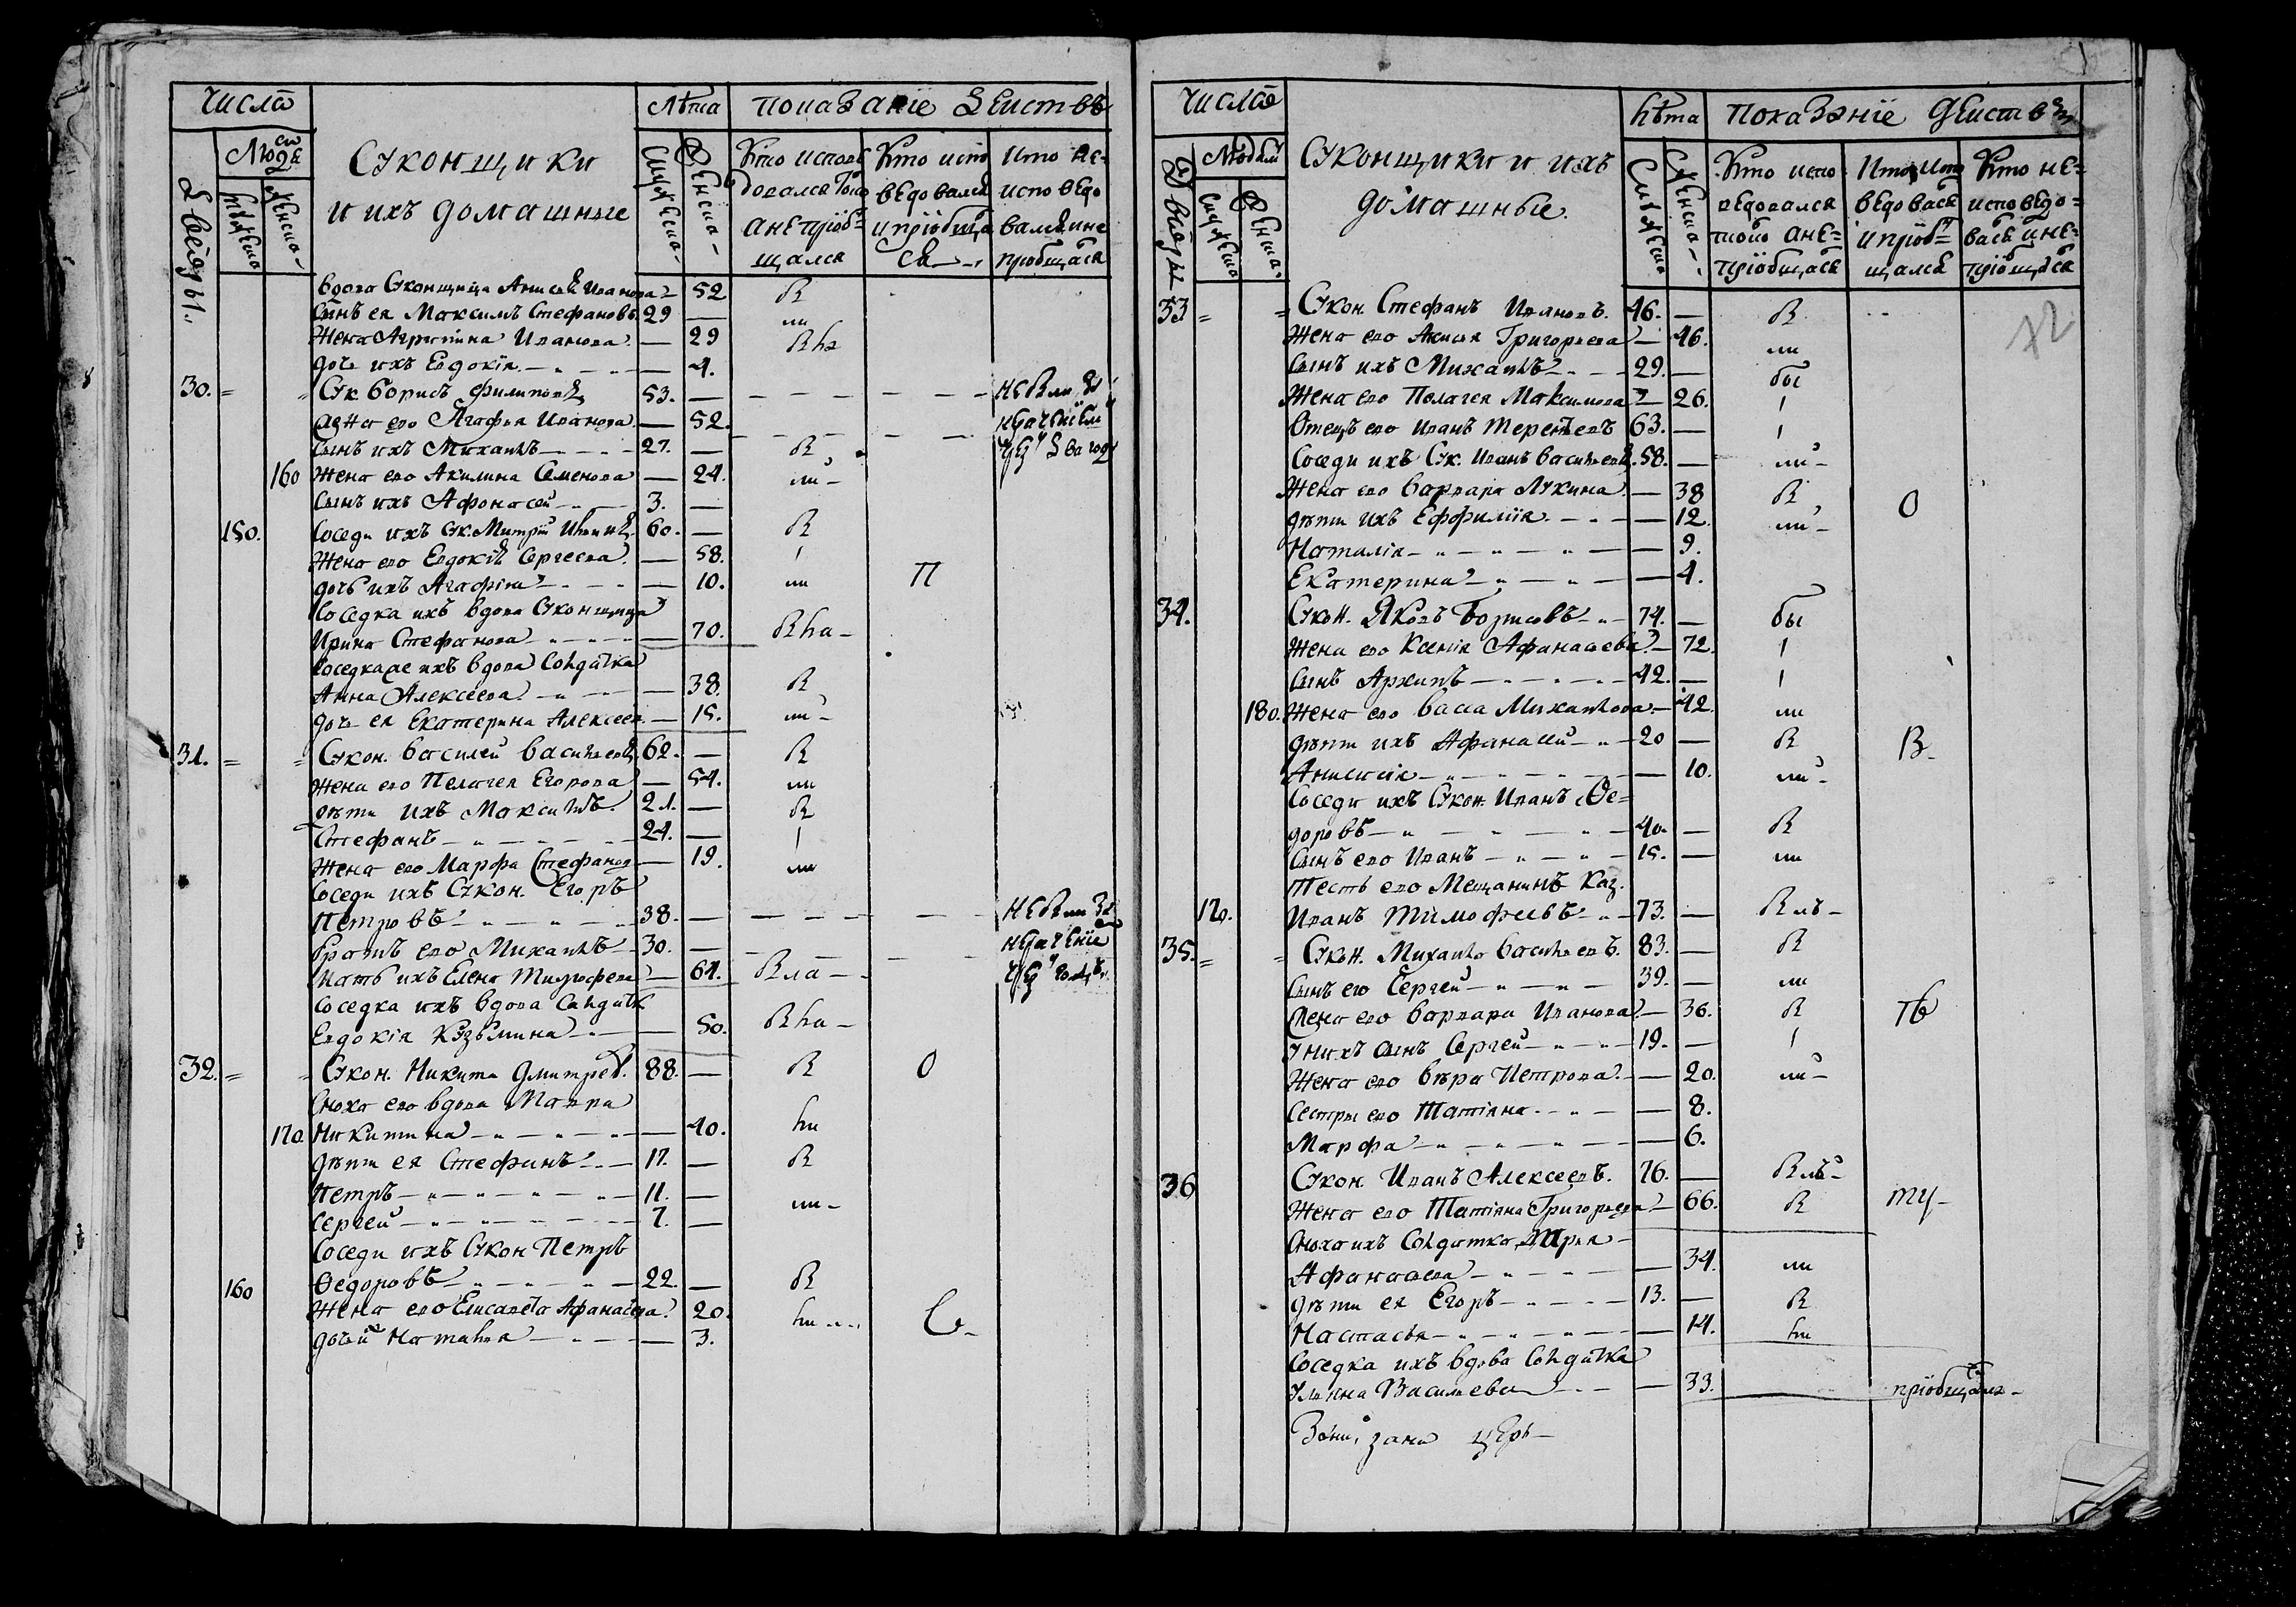 Числа
Людеи
Дворы
Мужеска
Женска
Суконщики
и ихъ домашные
Лѣта
Мужеска
Женска
показаніе Действъ
Кто испове
довался токо
а непріоб
щался
Кто испо
ведовался
и пріобща
ся
Кто не
исповедо
вался и не
пріобщался
вдова Сукощица Анисья Иванова — 52 я
Сынъ ея Максимъ Стефановъ. 29 — ли
Жена Агрипина Иванова — 29
дочь ихъ Евдокія — 4.
30. Сук Борисъ Филиповъ 53. —
Жена его Агафья Иванова — 52.
Сынъ ихъ Михаилъ 27. — я
160 Жена его Акилина Семенова — 24. ли
Сынъ ихъ Афонасей 3. —
150. Соседи ихъ Сук. Митрій 60. — я
Жена его Евдокія Сергеева — 58. і
дочь ихъ Агафіа — 10. ли П
Соседка ихъ вдова Сукощица
Ирина Стефанова — 70.
Соседка же ихъ вдова Солдатка
Анна Алексеева — 38. я
дочь ея Екатерина Алексеев — 15. ли
31. Сукон. Василей Васильевъ 62. — я
Жена его Пелагея Егорова — 54. ли
дѣти ихъ Максимъ 21. — я
Стефанъ 24. — і
Жена его Марфа Стефанов — 19. ли
Соседи ихъ Сукон. Егоръ
Петровъ 38. —
Братъ его Михаилъ 30. —
Мать ихъ Елена Тимофеева — 64.
Соседка ихъ вдова Салдатк
Евдокія Кузьмина — 50.
32. Сукон. Никита Дмитрев. 88. — я О
Сноха его вдова Мавра
170 Никитина — 40. ли
дѣти ея Стефанъ 17. — я
Петръ 11. —
Сергей 7. — ли
Соседи ихъ Сукон Петръ
160 Ѳедоровъ 22. — я
Жена его Елисавета Афанасева 20. ли С
дочь Наталья — 3.
Числа
Людеи
Дворы
Мужеска
Женска
Суконщики и ихъ
домашные.
Лѣта
Мужеска
Женска
показаніе Действъ
Кто испо
ведовался
токо а не
пріобщася
Кто испо
ведовася
и пріоб
щался
Кто не
исповедо
вася и не
пріобщася
72
33 Сукон. Стефанъ Ивановъ. 46. — я
Жена его Акилья Григорьева — 46. ли
Сынъ ихъ Михаилъ 29. — бы
Жена его Полагея Максимова — 26. і
Отецъ его Иванъ Терентевъ 63. — і
Соседи ихъ Сук. Иванъ Васильевъ. 58. — ли
Жена его Варвара Лукина — 38 я О
дѣти ихъ Еффимія — 12. ли
Наталія — 9.
Екатерина — 4.
34. Сукон. Яковъ Борисовъ 74. — бы
Жена его Ксенія Афанасева — 72. і
Сынъ Архипъ 42. — і
180. Жена его Васса Михаилова — 42. ли
дѣти ихъ Афанасий 20 — я В
Анисія — 10. ли
Соседи ихъ Сукон. Иванъ Ѳе=
доровъ 40. — я
Сынъ его Иванъ 15. — ли
Тесть его Мещанинъ Каз.
170. Иванъ Тимофеевъ 73. —
35. Сукон. Михаило Васильевъ. 83. — я
Сынъ его Сергей 39. — ли
Жена его Варвара Иванова — 36. я
У нихъ сынъ Сергей 19. — і
Жена его Вѣра Петрова — 20. ли
Сестры его Татіана — 8.
Марфа — 6.
36 Сукон. Иванъ Алексеевъ. 76. —
Жена его Татіана Григорьева — 66. я
Сноха ихъ Солдатка
Афанасева — 34. ли
дѣти ея Егоръ 13. — я
Настасья — 14. ли
Соседка ихъ вдова Солдатка
Ульяна Васильева — 33.